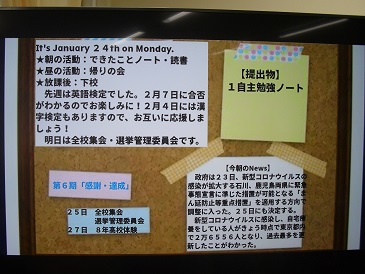 It's January 24th on Monday.
★朝の活動：できたことノート・読書
★昼の活動：帰りの会
★放課後：下校
　先週は英語検定でした。２月７日に合否
がわかるのでお楽しみに！２月４日には漢
字検定もありますので、お互いに応援しま
しょう！
　明日は全校集会・選挙管理委員会です。
【提出物】
１自主勉強ノート
第６期「感謝・達成」
２５日　全校集会
　　　　選挙管理委員会
２７日　８年高校体験
【今朝のNews】
　政府は２３日、新型コロナウイルスの
感染が拡大する石川、鹿児島両県に緊急
事態宣言に準じた措置が可能となる「ま
ん延防止等重点措置」を適用する方向で
調整に入った。２５日にも決定する。
　新型コロナウイルスに感染し、自宅療
養をしている人がきょう時点で東京都内
で２万６５５６人となり、過去最多を更
新したことがわかった。